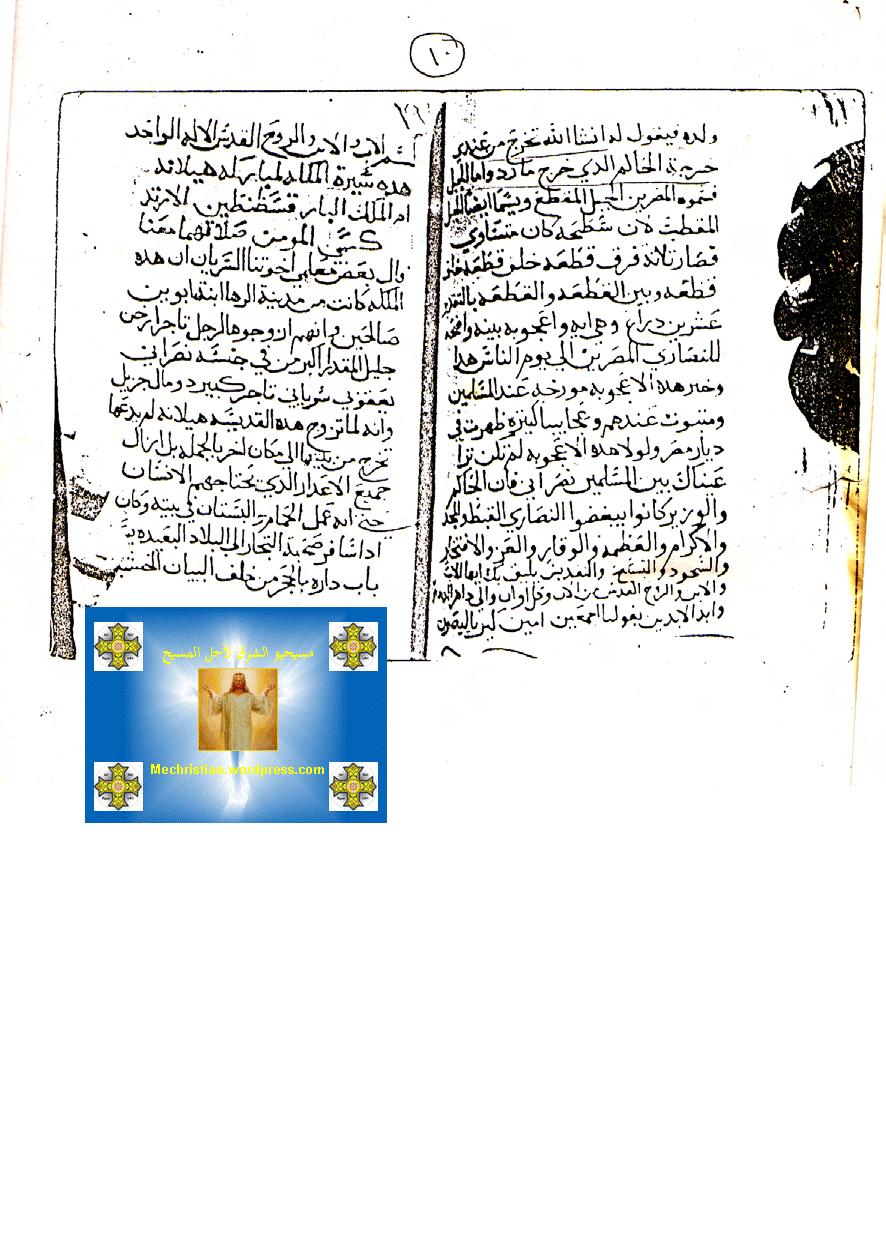 ١٠
ولده فيقول له انشا الله تخرج من عندي
حرمة الحاكم الذي خرج ما رد واما الجبل
فسموه المصريين الجبل المقطع ويسما ايضا الجبل
المقطب لان سطحه كان متساوي
فصار تلاته فرق قطعه خلف قطعه
قطعه وبين القطعه والقطعه بالتقدير
عشرين دراع وهي ايه واعجوبه بينه واضحه
للنصاري المصريين الي يوم الناس هدا
وخبر هده الاعجوبه مورخه عند المسلمين
ومتبوت عندهم وعجايب كتيرة ظهرت في
ديار مصر ولولا هده الاعجوبه لم تكن ترا
هناك بين المسلمين نصراني فان الحاكم
والوزير كانوا يبغضوا النصاري القبط والمجد
والاكرام والعظمه والوقار والعز والافتخار
والسجود والتسبيح والتقديس يليق بك ايها الاب
والابن والروح القدس الان وكل اوان والي دهر
وابد الابدين يقولنا اجمعين امين كيرياليصون
٢٦
بسم الاب والابن والروح القدس الاله الواحد
هده سيرة الملكه المباركه هيلانه
ام الملك البار قسطنطين
المومن صلاتهما معنا
قال بعض معلمي اخوتنا السريان ان هده
الملكه كانت من مدينة الرها ابنة ابوين
صالحين وانهم ازوجوها لرجل تاجر ارخن
جليل المقدار اكبر من في جنسه نصراني
يعقوبي سرياني تاجر كبير دو مال جزيل
وانه لما تزوج هده القديسه هيلانه لم يدعها
تخرج من بيتها الي مكان اخر بالجمله بل ازال
جميع الاعدار الذي يحتاجهم الانسان
حتي انه عمل الحمام والبستان في بيته وكان
ادا سافر صحبة التجار الي البلاد البعيده
باب داره بالحجر من خلف الباب الخشب
مسيحيو الشرق لأجل المسيح
Mechristian.wordpress.com